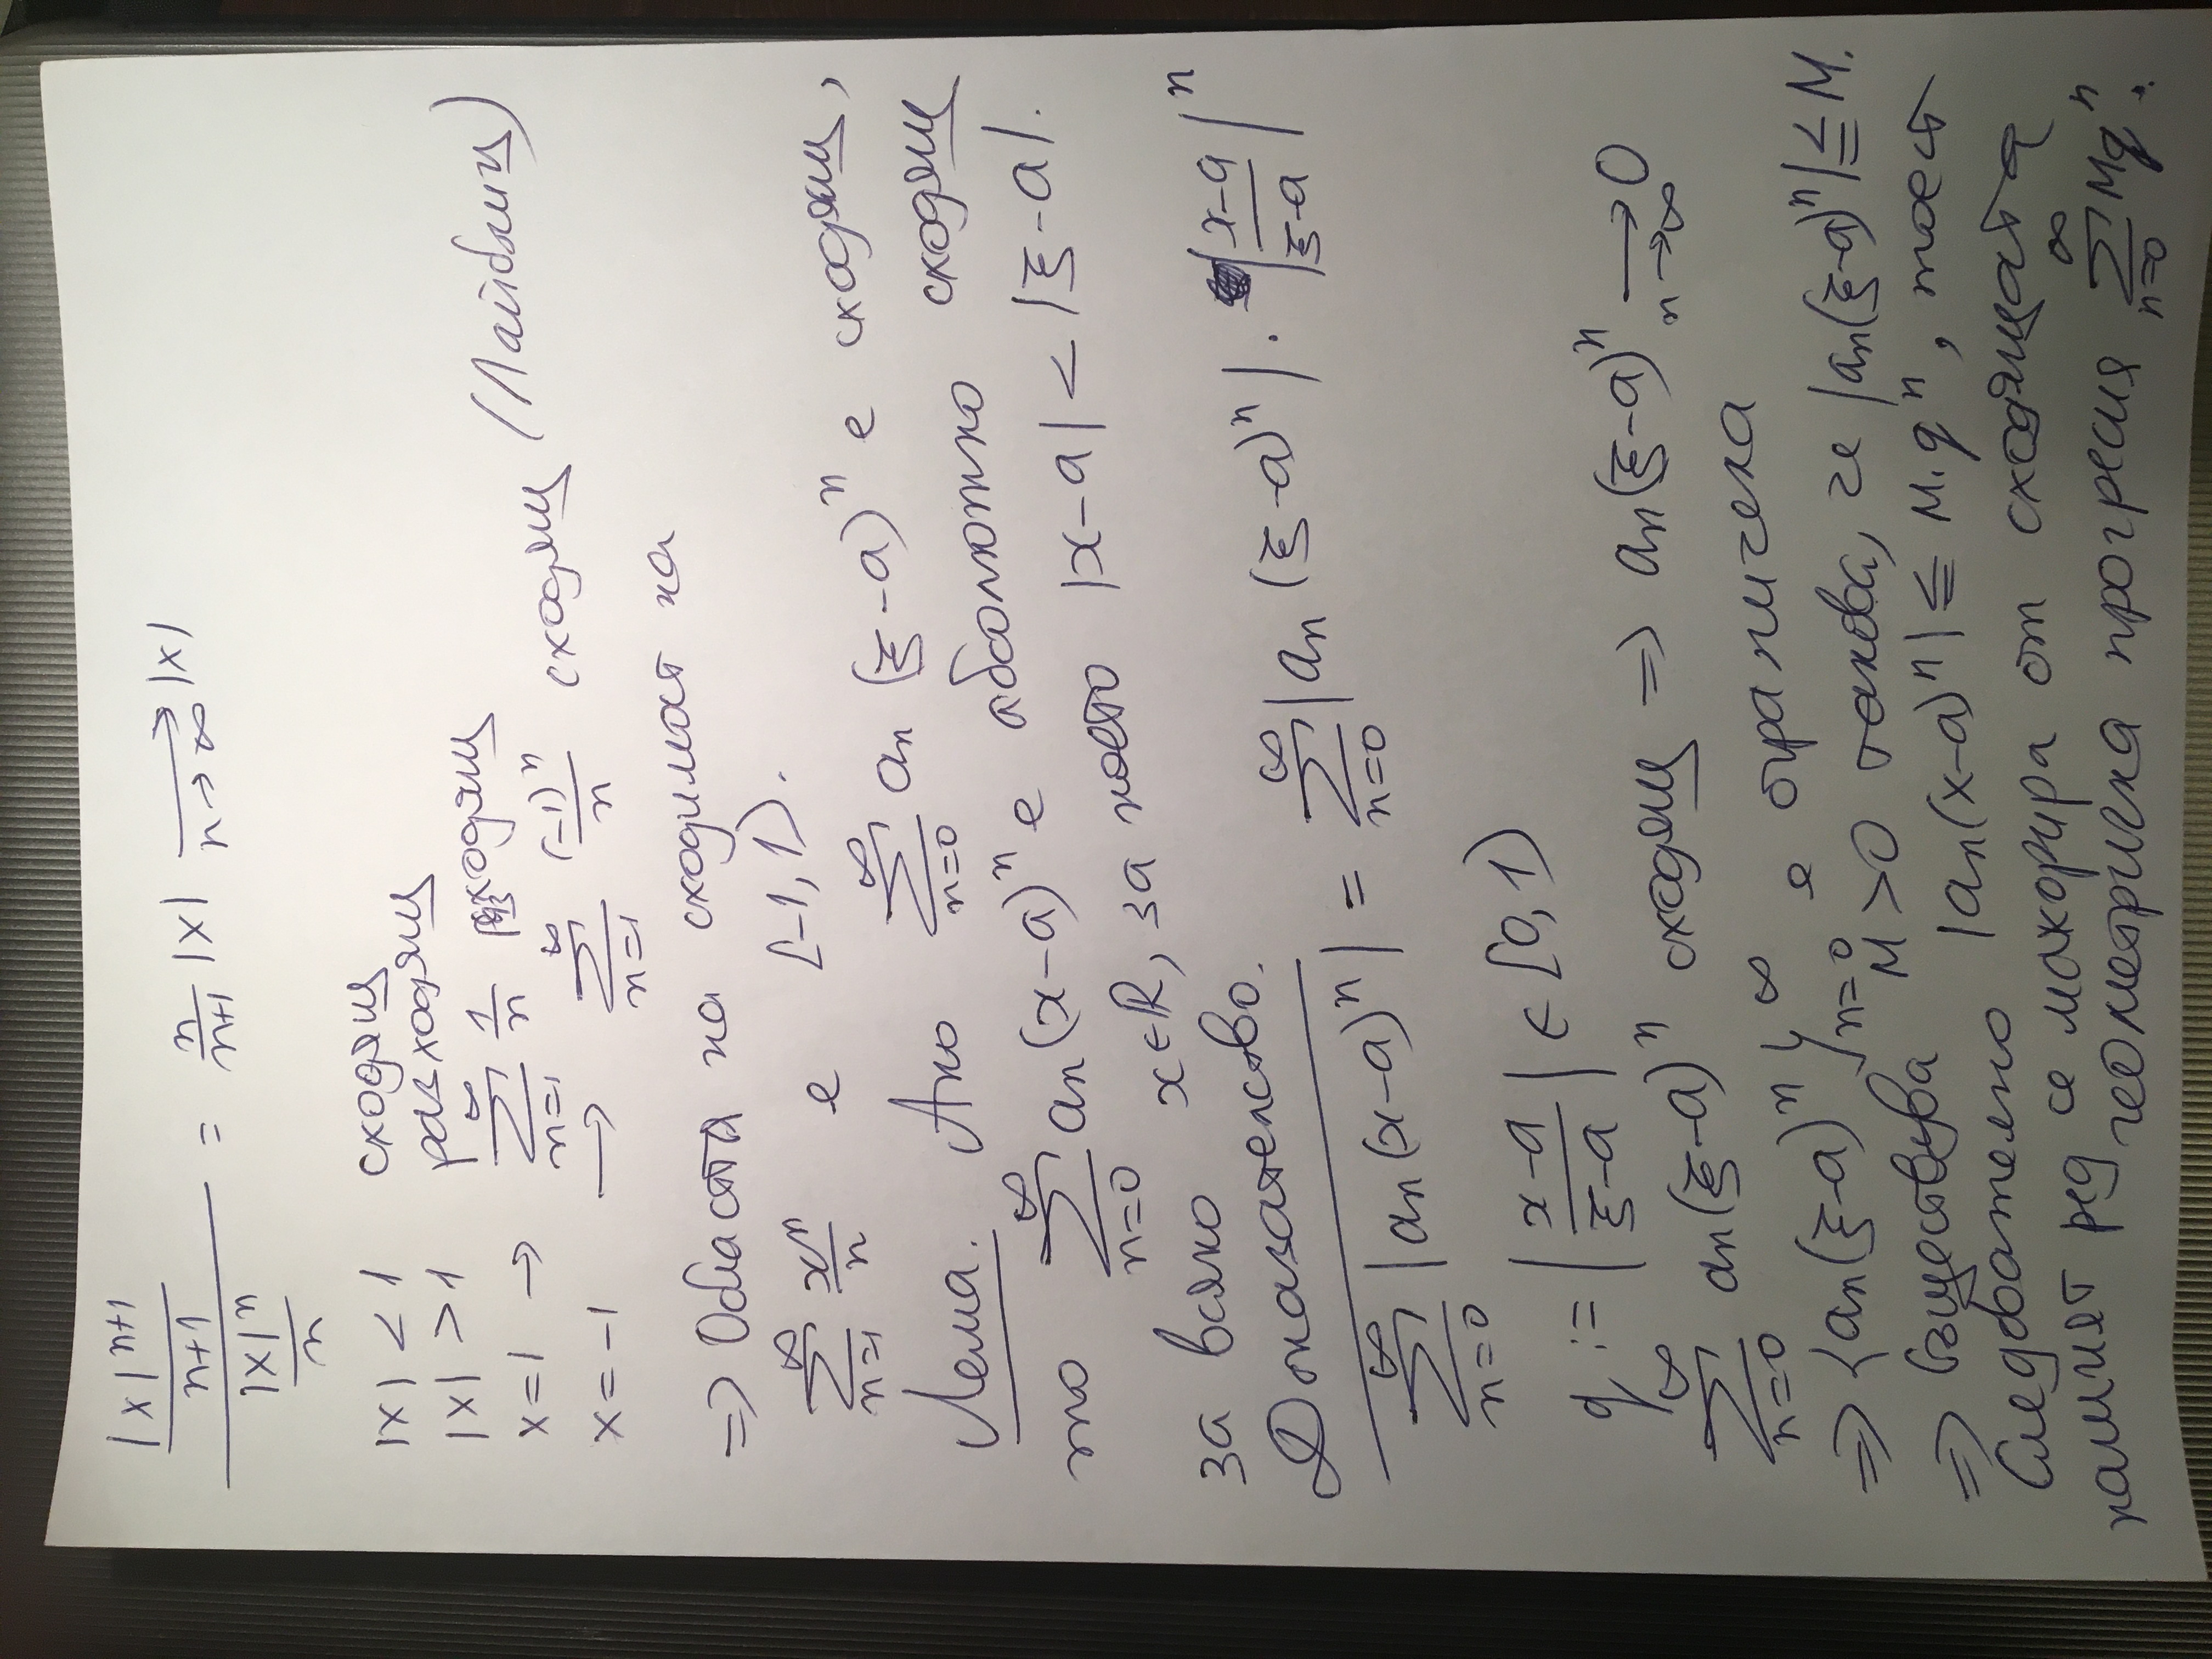 |x|^{n+1}/(n+1) / |x|^n/n = n/(n+1) |x| →_{n→∞} |x|
|x| < 1 сходящ
|x| > 1 разходящ
x = 1 → ∑_{n=1}^{∞} 1/n разходящ
x = -1 → ∑_{n=1}^{∞} (-1)^n/n сходящ (Лайбниц)
=> Областта на сходимост на
∑_{n=1}^{∞} x^n/n е [-1, 1).
Лема. Ако ∑_{n=0}^{∞} a_n (ξ-a)^n е сходящ,
то ∑_{n=0}^{∞} a_n (x-a)^n е абсолютно сходящ
за всяко x∈ℝ, за което |x-a| < |ξ-a|.
Доказателство.
∑_{n=0}^{∞} |a_n (x-a)^n| = ∑_{n=0}^{∞} |a_n (ξ-a)^n| . |(x-a)/(ξ-a)|^n
q := |(x-a)/(ξ-a)| ∈ [0, 1)
∑_{n=0}^{∞} a_n (ξ-a)^n сходящ => a_n (ξ-a)^n →_{n→∞} 0
=> {a_n (ξ-a)^n}_{n=0}^{∞} е ограничена
=> Съществува M > 0 такова, че |a_n (ξ-a)^n| ≦ M.
Следователно |a_n (x-a)^n| ≦ M.q^n, тоест
нашият ред се мажорира от сходящата
геометрична прогресия ∑_{n=0}^{∞} Mq^n.